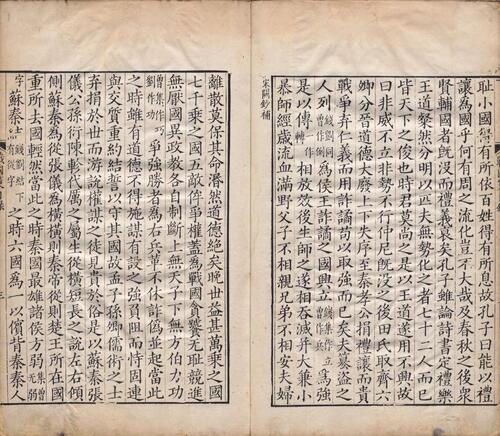 耻小國得有所依百姓得有所息故孔子曰能以禮
讓為國乎何有周之流化豈不大哉及春秋之後衆
賢輔國者既沒而禮義衰矣孔子雖論詩書定禮樂
王道粲然分明以匹夫無勢化之者七十二人而已
皆天下之俊也時君莫尚之是以王道遂用不興故
曰非威不立非勢不行仲尼既沒之後田氏取齊六
卿分晉道德大廢上下失序至秦孝公捐禮讓而貴
戰爭弃仁義而用詐譎苟以取強而已矣夫篡盗之
人列為侯王詐譎之國興立為強
是以傳相放效後生師之遂相吞滅并大兼小
暴師經歲流血滿野父子不相親兄弟不相安夫婦
宋闕鈔補
離散莫保其命湣然道德絶矣晚世益甚萬乘之國
七千乘之國五敵侔爭權蓋為戰國貪饕無耻競進
無厭國異政教各自制斷上無天子下無方伯力功
曾集作巧劉作功爭強勝者為右兵革不休詐偽並起當此
之時雖有道德不得施謀有設之強負阻而恃固連
與交質重約結誓以守其國故孟子孫卿儒術之士
弃捐於世而游說權謀之徒見貴於俗是以蘇秦張
儀公孫衍陳軫代厲之屬生從橫短長之說左右傾
側蘇秦為從張儀為橫橫則秦帝從則楚王所在國
重所去國輕然當此之時秦國最雄諸侯方弱
字蘇秦之時六國為一以儐背秦秦人